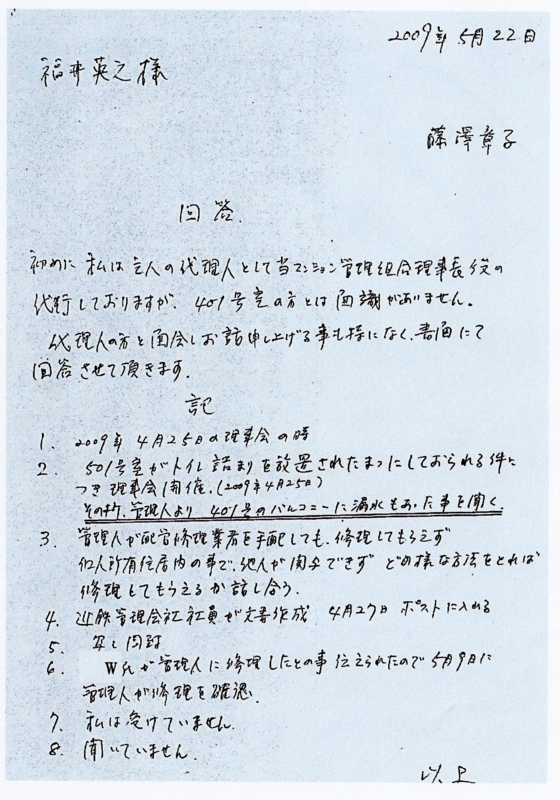 2009年 5月22日
福井英之様
藤澤章子
回答.
初めに 私は主人の代理人として当マンション管理組合理事長役の
代行しておりますが、401号室の方とは面識がありません。
代理人の方と面会しお話申し上げる事も特になく、書面にて
回答させて頂きます.
記
1. 2009年 4月25日の理事会の時
2. 501号室がトイレ詰まりを放置されたままにしておられる件に
つき理事会開催.(2009年4月25日)
その折、管理人より 401号のバルコニーに漏水もあった事を聞く.
3. 管理人が配管修理業者を手配しても、修理してもらえず
個人所有住居内の事で、他人が関与できず どの様な方法をとれば
修理してもらえるか話し合う.
4. 近鉄管理会社社員が文書作成 4月27日 ポストに入れる
5. 写し同封
6. W氏が管理人に修理したとの事伝えられたので5月9日に
管理人が修理を確認.
7. 私は受けていません.
8. 聞いていません.
以上